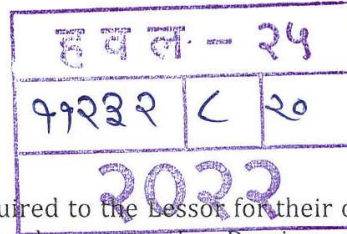 हवल. - २५
११२३२ ८ २०
२०२२
uired to the Lessor for their o